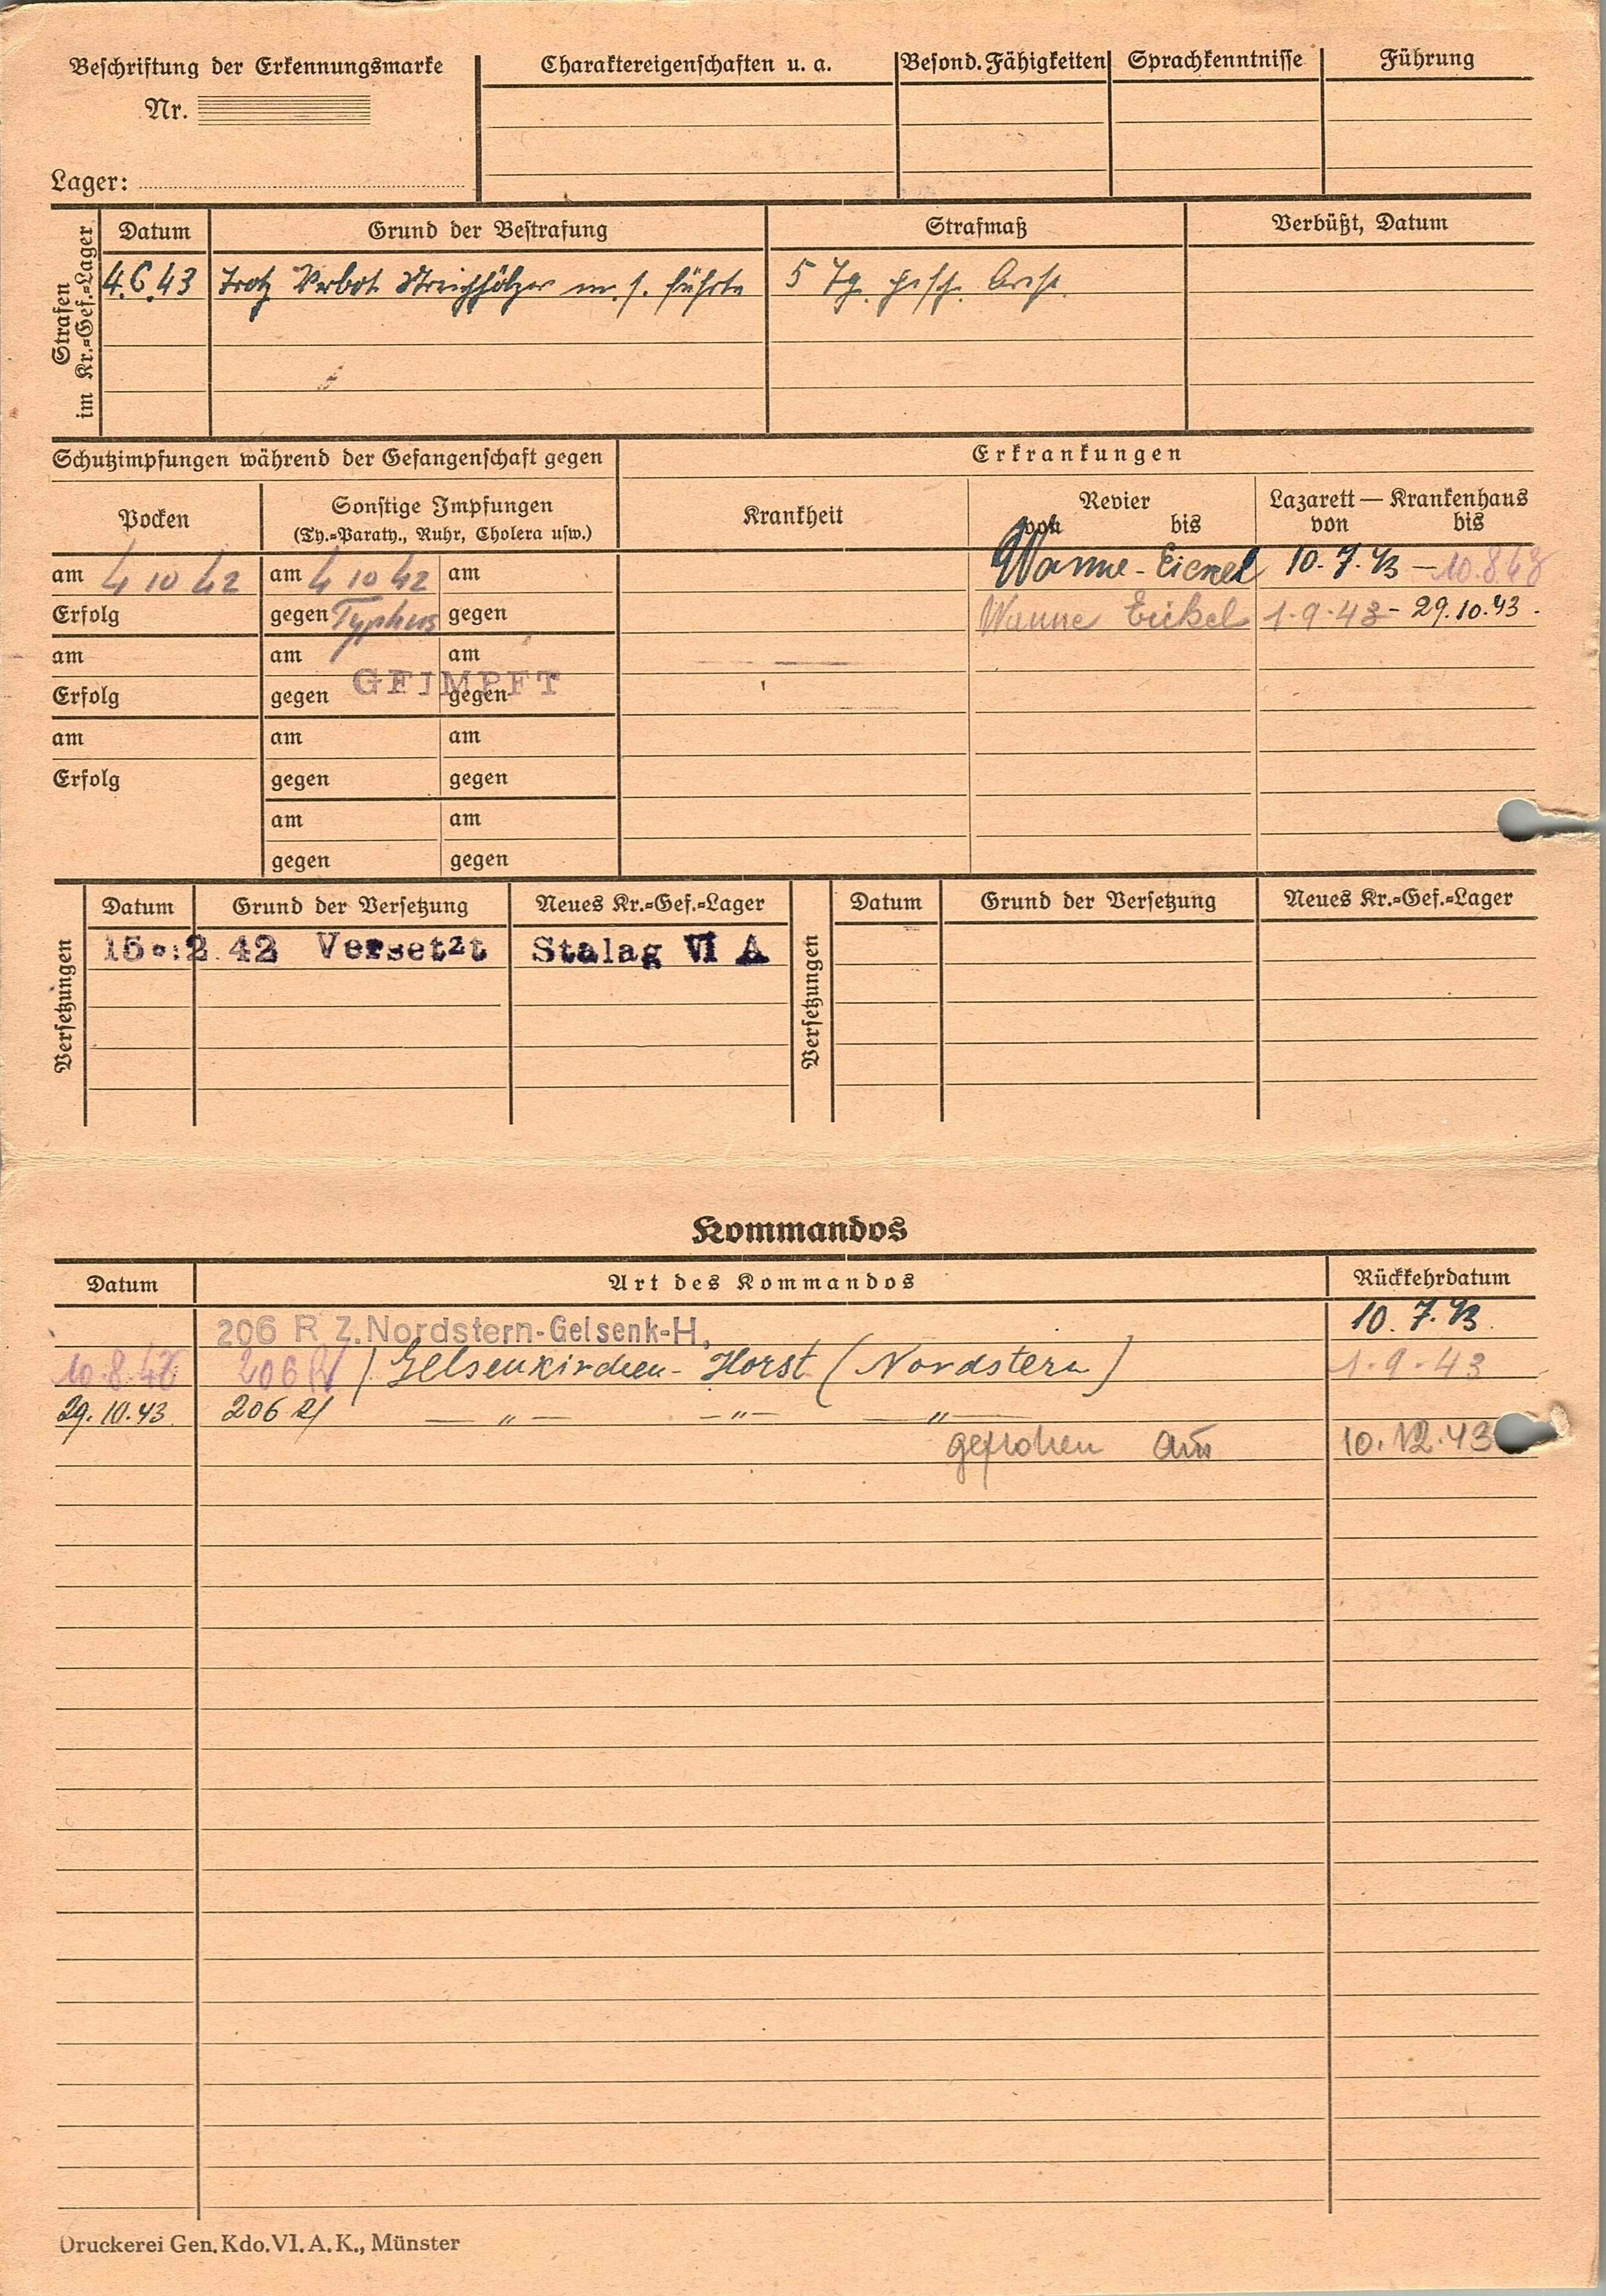 Beschriftung der Erkennungsmarke
Nr.
Lager:
Charaktereigenschaften u. a.
Besond. Fähigkeiten
Sprachkenntnisse
Führung
Strafen
im Kr.-Gef.-Lager
Datum Grund der Bestrafung Strafmaß Verbüßt, Datum
4.6.43 Trotz Verbot Streichhölzer m. s. führte 5 Tg. gesch. Arest.
Schutzimpfungen während der Gefangenschaft gegen
Erkrankungen
Pocken
Sonstige Impfungen
(Ty.-Paraty., Ruhr, Cholera usw.)
Krankheit
Revier
von bis
Lazarett — Krankenhaus
von bis
am 4 10 42 am 4 10 42 am
Erfolg gegen Typhus gegen
am am am
Erfolg gegen GEIMPFT gegen
am am am
Erfolg gegen gegen
am am
gegen gegen
Wanne-Eickel 10.7.43 – 10.8.43
Wanne Eickel 1.9.43 - 29.10.43.
Versetzungen
Datum Grund der Versetzung Neues Kr.-Gef.-Lager
Versetzt Stalag VI A
Versetzungen
Datum Grund der Versetzung Neues Kr.-Gef.-Lager
Kommandos
Datum Art des Kommandos Rückkehrdatum
206 R Z.Nordstern-Gelsenk-H, 10.7.43.
10.8.43 206 R / Gelsenkirchen-Horst (Nordstern) 1.9.43
29.10.43 206 R/ — " — — " — — " —
geflohen am 10.12.43
Druckerei Gen. Kdo. VI. A. K., Münster